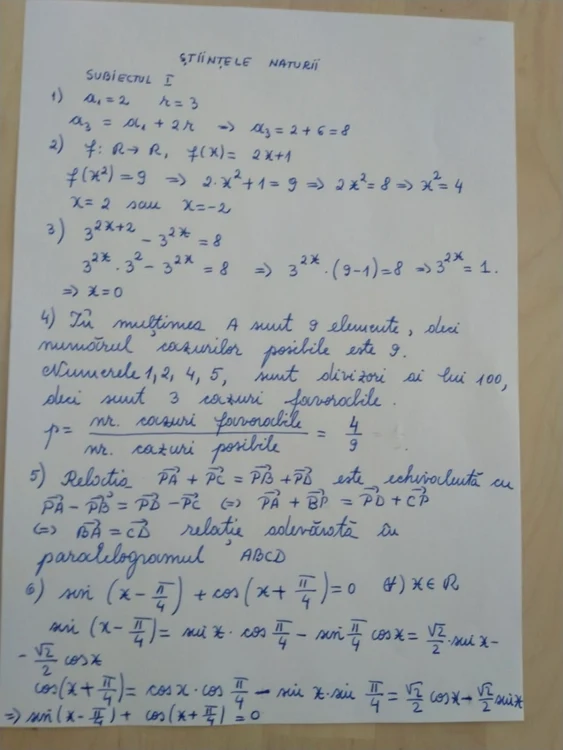 ȘTIINȚELE NATURII
SUBIECTUL I
1) a₁ = 2 r = 3
a₃ = a₁ + 2r ⇒ a₃ = 2 + 6 = 8
2) f: R → R, f(x) = 2x+1
f(x²) = 9 ⇒ 2·x²+1 = 9 ⇒ 2x² = 8 ⇒ x² = 4
x = 2 sau x = -2
3) 3^{2x+2} - 3^{2x} = 8
3^{2x} · 3² - 3^{2x} = 8 ⇒ 3^{2x} · (9-1) = 8 ⇒ 3^{2x} = 1.
⇒ x = 0
4) În mulțimea A sunt 9 elemente, deci
numărul cazurilor posibile este 9.
Numerele 1, 2, 4, 5, sunt divizori ai lui 100,
deci sunt 3 cazuri favorabile.
p = nr. cazuri favorabile / nr. cazuri posibile = 4/9
5) Relația PA⃗ + PC⃗ = PB⃗ + PD⃗ este echivalentă cu
PA⃗ - PB⃗ = PD⃗ - PC⃗ ⇔ PA⃗ + BP⃗ = PD⃗ + CP⃗
⇔ BA⃗ = CD⃗ relație adevărată în
paralelogramul ABCD
6) sin (x - π/4) + cos (x + π/4) = 0 (∀) x ∈ R
sin (x - π/4) = sin x · cos π/4 - sin π/4 cos x = √2/2 · sin x -
- √2/2 cos x
cos(x + π/4) = cos x · cos π/4 - sin x · sin π/4 = √2/2 cos x - √2/2 sin x
⇒ sin(x - π/4) + cos(x + π/4) = 0